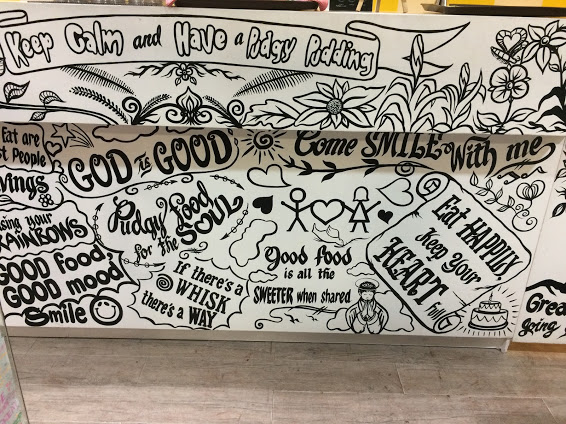 Keep Calm and Have a Pudgy Pudding
Eat are
st People
GOD is GOOD
Come SMILE With me
Wings
Pudgy food
for the SOUL
using your
RAINBOWS
GOOD food,
GOOD mood
Smile
if there's a
WHISK
there's a WAY
Good food
is all the
SWEETER when shared
Eat HAPPILY,
Keep Your
HEART full
Grea
going